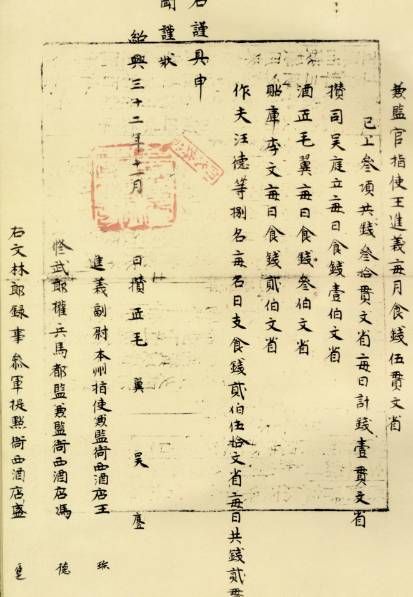 兼監官指使王進義每月食錢伍貫文省
已上叁項共錢叁拾貫文省每日計錢壹貫文省
攢司吳庭立每日食錢壹伯文省
酒匠毛翼每日食錢叁伯文省
貼庫李文每日食錢貳伯文省
作夫汪德等捌名每名日支食錢貳伯伍拾文省每日共錢貳貫
右謹具申
聞謹狀
紹興三十二年十二月 日攢匠毛翼吳
進義副尉本州指使兼監衙西酒店王
修武郎權兵馬都監兼監衙西酒店馮 德
右文林郎録事參軍提點衙西酒店盛